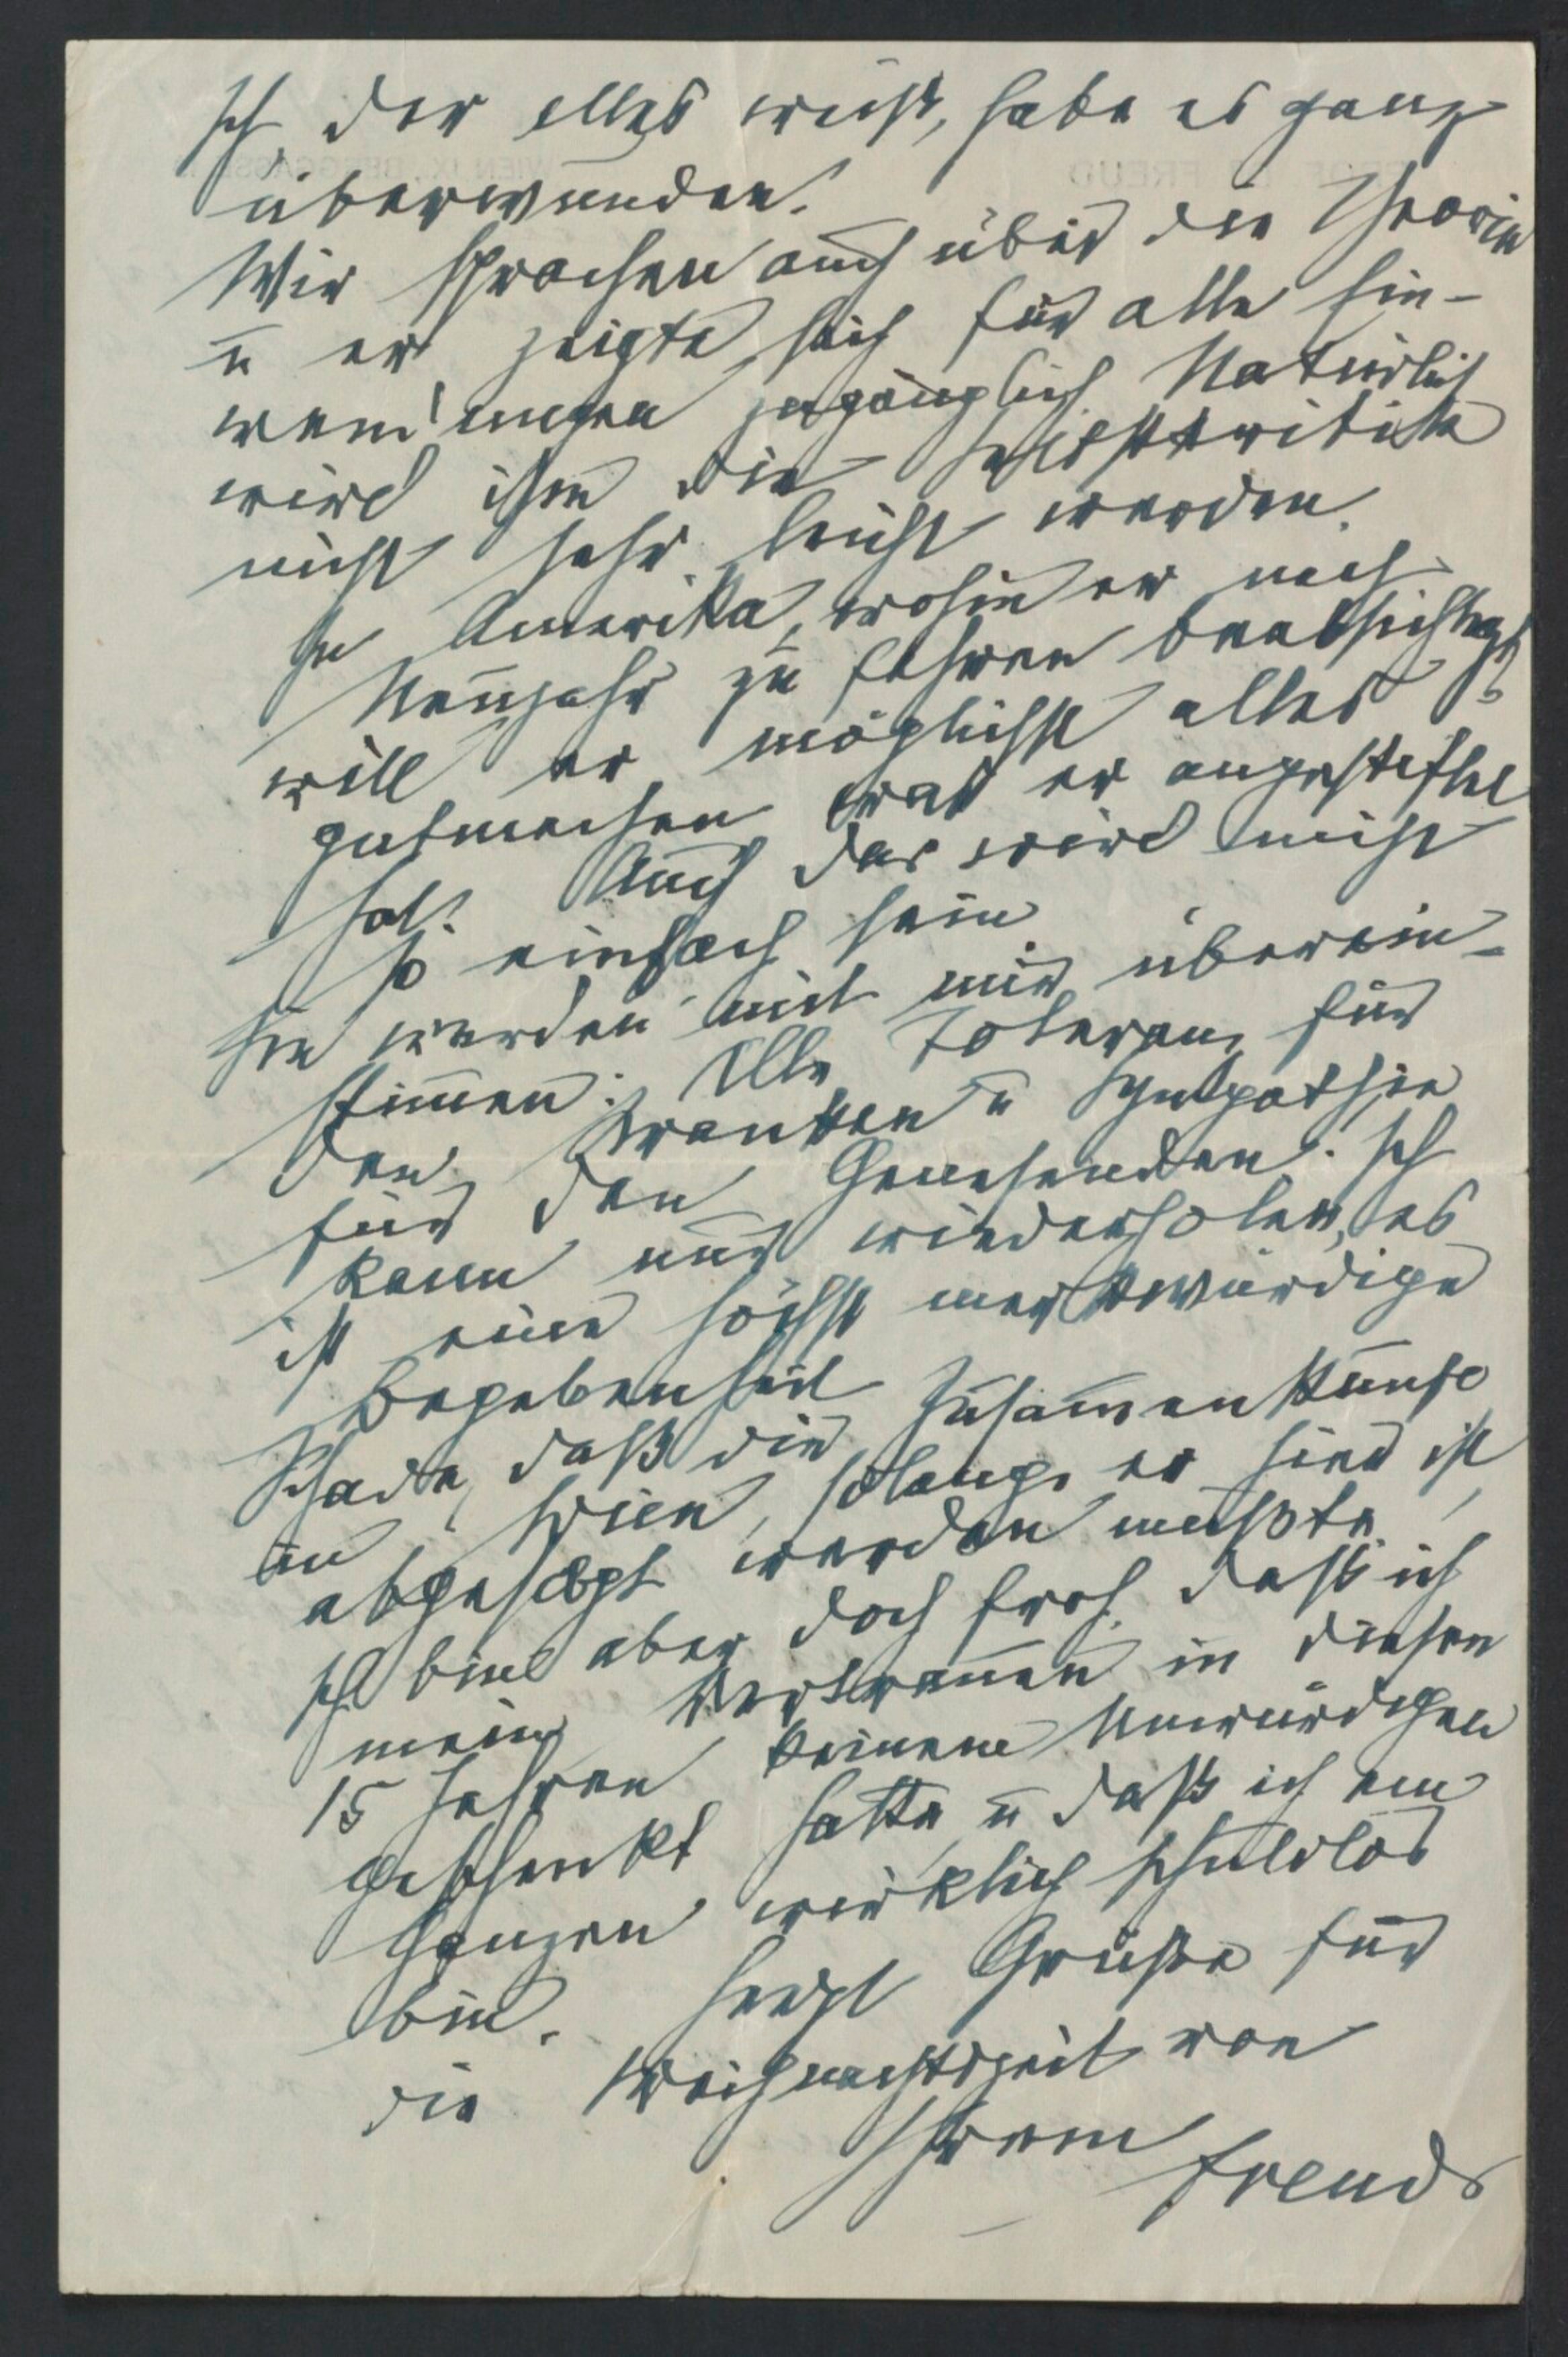 Ich, der alles weiß, habe es ganz
überwunden.
Wir sprachen auch über die Theorie
u er zeigte sich für alle Ein-
wendungen zugänglich. Natürlich
wird ihm die Selbstkritik
nicht sehr leicht werden.
In Amerika, wohin er nach
Neujahr zu fahren beabsichtigt,
will er möglichst alles
gutmachen was er angestiftet
hat. Auch das wird nicht
so einfach sein.
Sie werden mit mir überein-
stimmen: Alle Toleranz für
den Kranken u Sympathie
für den Genesenden. Ich
kann nur wiederholen, es
ist eine höchst merkwürdige
Begebenheit.
Schade, daß die Zusammenkunft
in Wien, solange er hier ist,
abgesagt werden mußte.
Ich bin aber doch froh, daß ich
mein Vertrauen in diesen
15 Jahren keinem Unwürdigen
geschenkt hatte u daß ich am
Ganzen wirklich schuldlos
bin. Herzl Grüße für
die Weihnachtszeit von
Ihrem
Freud